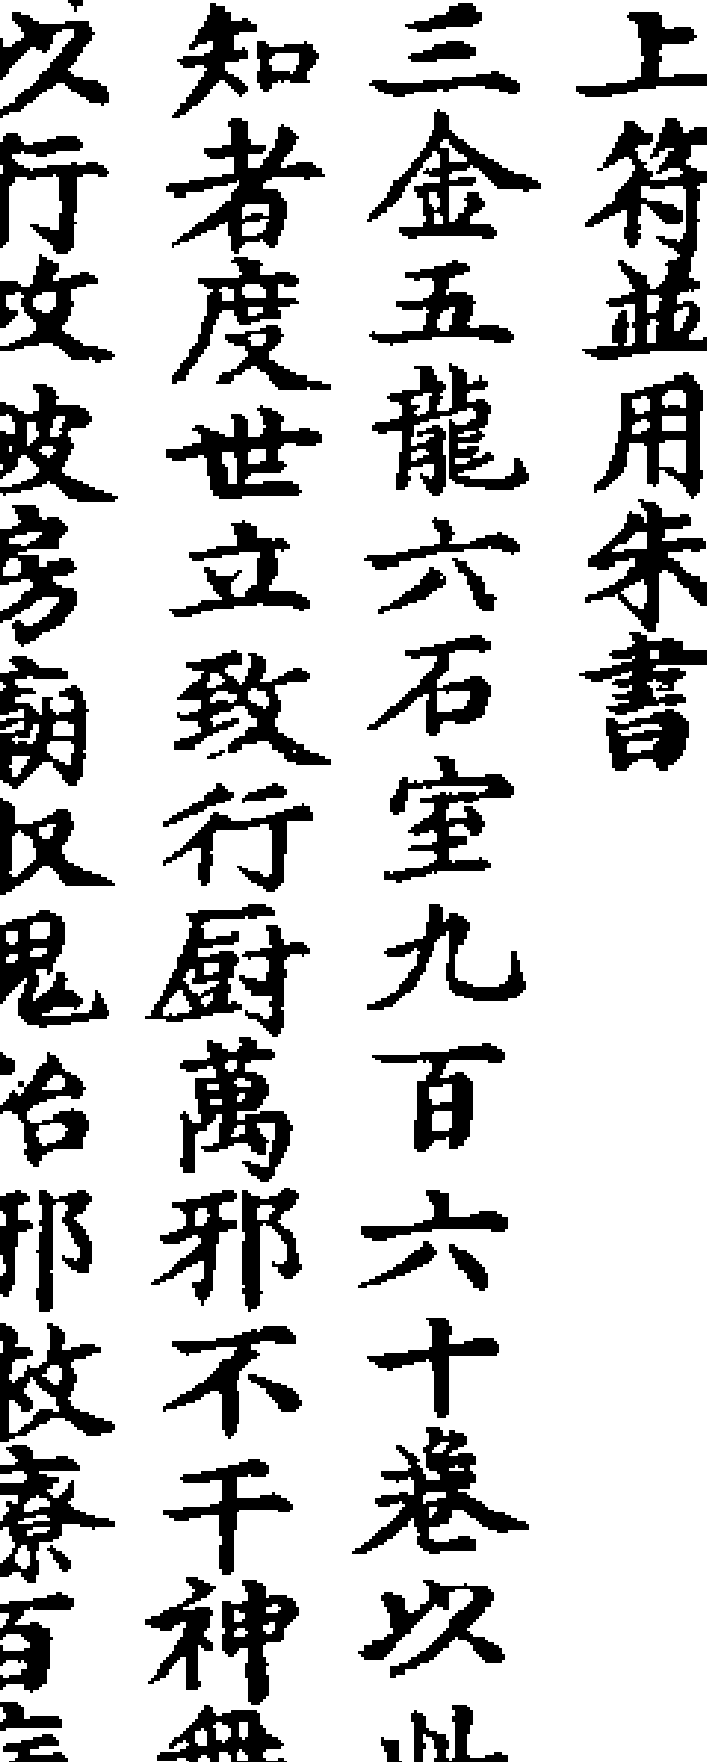 上符並用朱書
三金五龍六石室九百六十卷以此
知者度世立致行厨萬邪不干神無
以行攻破房廟收鬼治邪救療百病